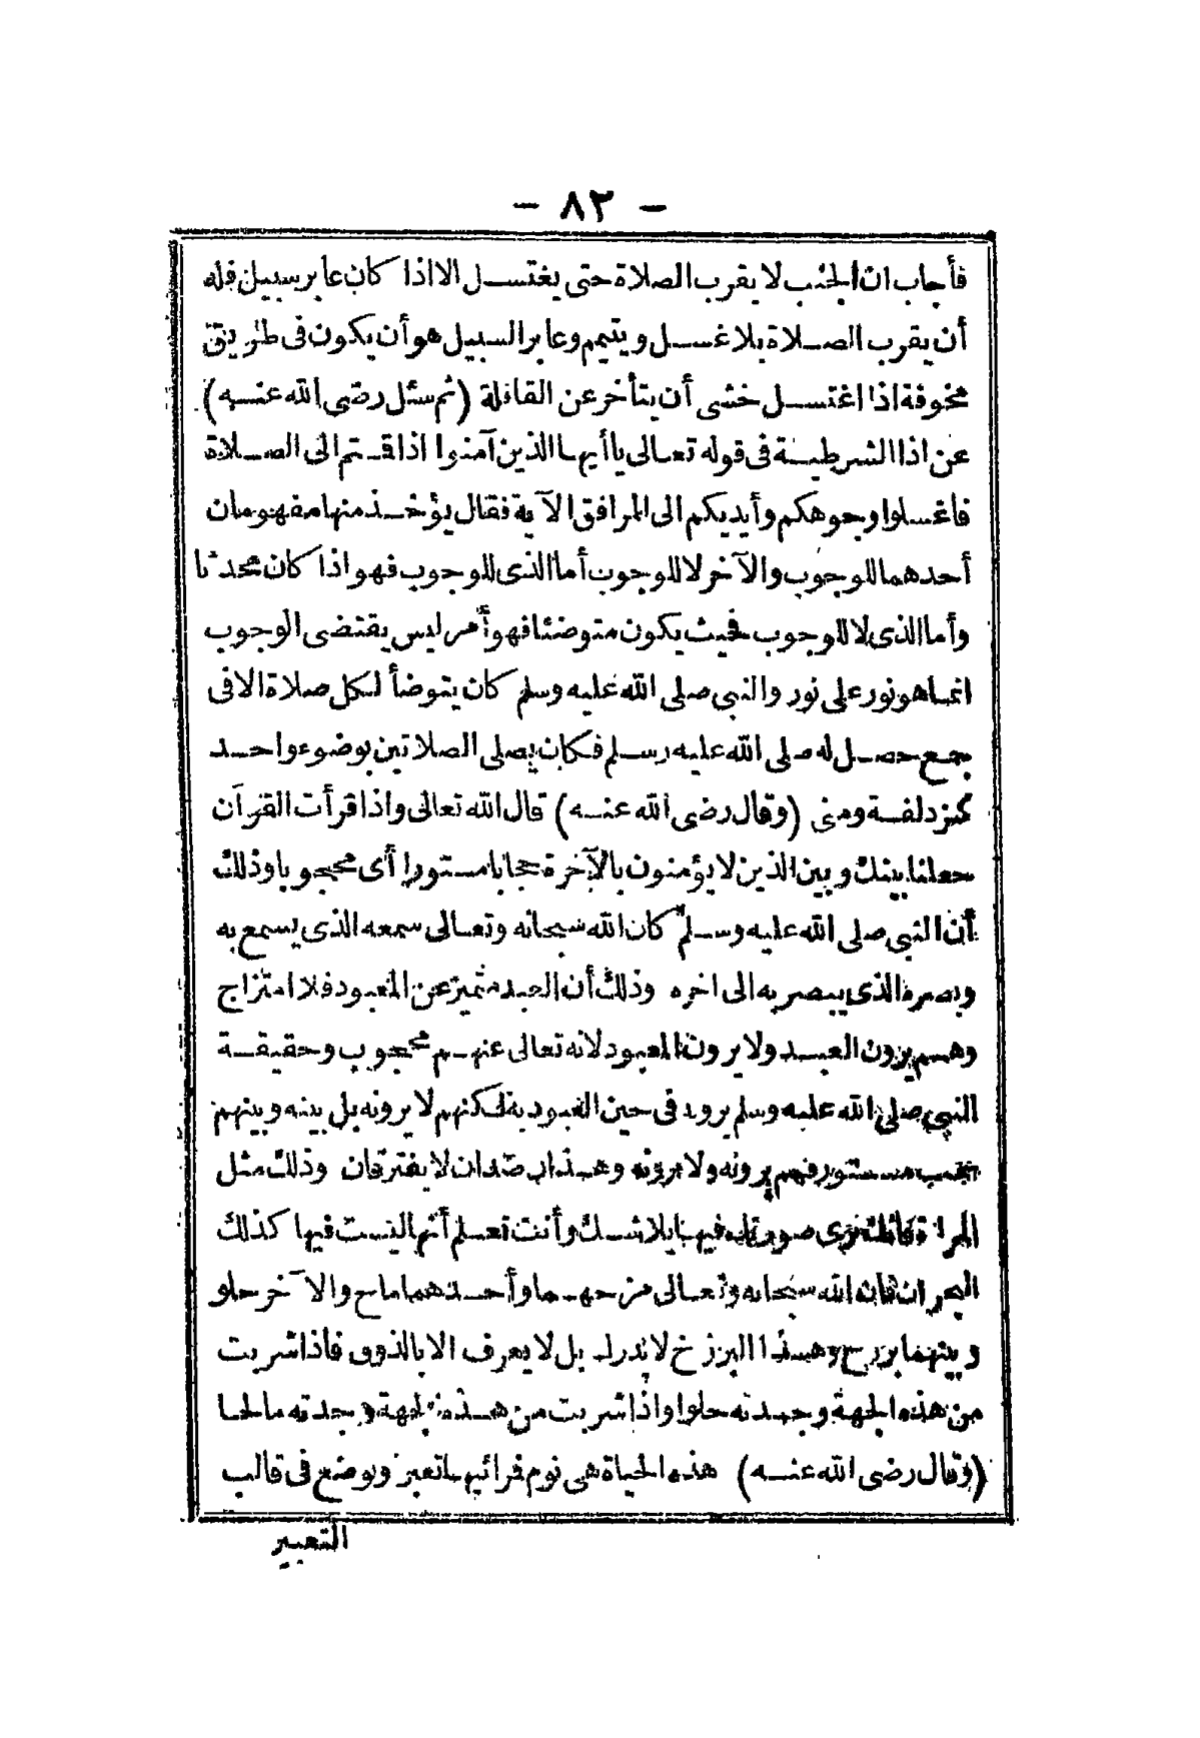 - ٨٢ -
فأجاب ان الجنب لا يقرب الصلاة حتى يغتسل الا اذا كان عابر سبيل فله
أن يقرب الصلاة بلا غسل ويتيمم وعابر السبيل هو أن يكون فى طريق
مخوفة اذا اغتسل خشى أن يتأخر عن القافلة (ثم سئل رضى الله عنه)
عن اذا الشرطية فى قوله تعالى ياأيها الذين آمنوا اذا قمتم الى الصلاة
فاغسلوا وجوهكم وأيديكم الى المرافق الآية فقال يؤخذ منها مفهومان
أحدهما للوجوب والآخر لا للوجوب أما الذى للوجوب فهو اذا كان محدثا
وأما الذى لا للوجوب فحيث يكون متوضئا فهو أمر ليس يقتضى الوجوب
انما هو نور على نور والنبى صلى الله عليه وسلم كان يتوضأ لكل صلاة الا فى
جمع حصل له صلى الله عليه وسلم فكان يصلى الصلاتين بوضوء واحد
كمزدلفة ومنى (وقال رضى الله عنه) قال الله تعالى واذا قرأت القرآن
جعلنا بينك وبين الذين لا يؤمنون بالآخرة حجابا مستورا أى محجوبا وذلك
أن النبى صلى الله عليه وسلم كان الله سبحانه وتعالى سمعه الذى يسمع به
وبصره الذى يبصر به الى اخره وذلك أن العبد متميز عن المعبود فلا امتزاج
وهم يرون العبد ولا يرون المعبود لانه تعالى عنهم محجوب وحقيقة
النبى صلى الله عليه وسلم يرونه فى حين العبودية لكنهم لا يرونه بل بينه وبينهم
حجب مستور فهم يرونه ولا يرونه وهذان ضدان لا يفترقان وذلك مثل
المرآة فانك ترى صورتك فيها بلا شك وأنت تعلم أنها ليست فيها كذلك
البحران فان الله سبحانه وتعالى مزجهما وأحدهما مالح والآخر حلو
وبينهما برزخ وهذا البرزخ لا يدرك بل لا يعرف الا بالذوق فاذا شربت
من هذه الجهة وجدته حلوا واذا شربت من هذه الجهة وجدته مالحا
(وقال رضى الله عنه) هذه الحياة هى نوم فرائيها تعبر ويوضع فى قالب
التعبير